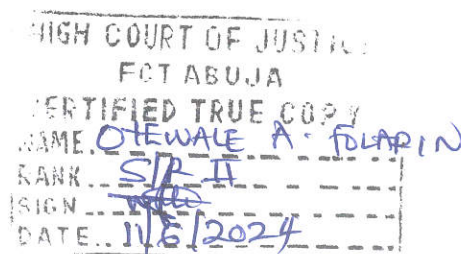 HIGH COURT OF JUSTIC
FCT ABUJA
CERTIFIED TRUE COPY
NAME OTEWALE A. FOLARIN
RANK S/R II
SIGN
DATE 11/6/2024